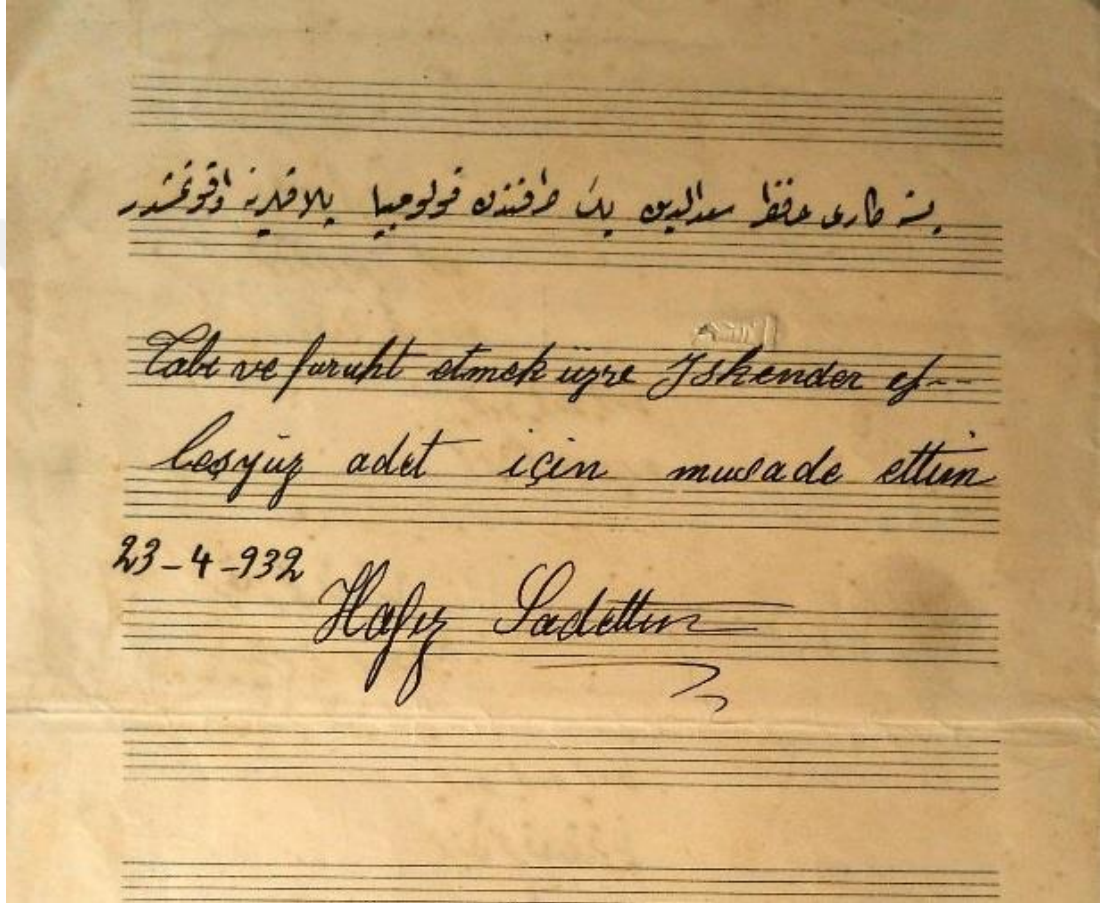 بسته‌كاری حافظ سعدالدین بك طرفندن قولومبیا پلاقلرینه اوقونمشدر
Tabı ve furuht etmek üzre Iskender ef--
beşyüz adet için musade ettim
23-4-932
Hafız Sadettin